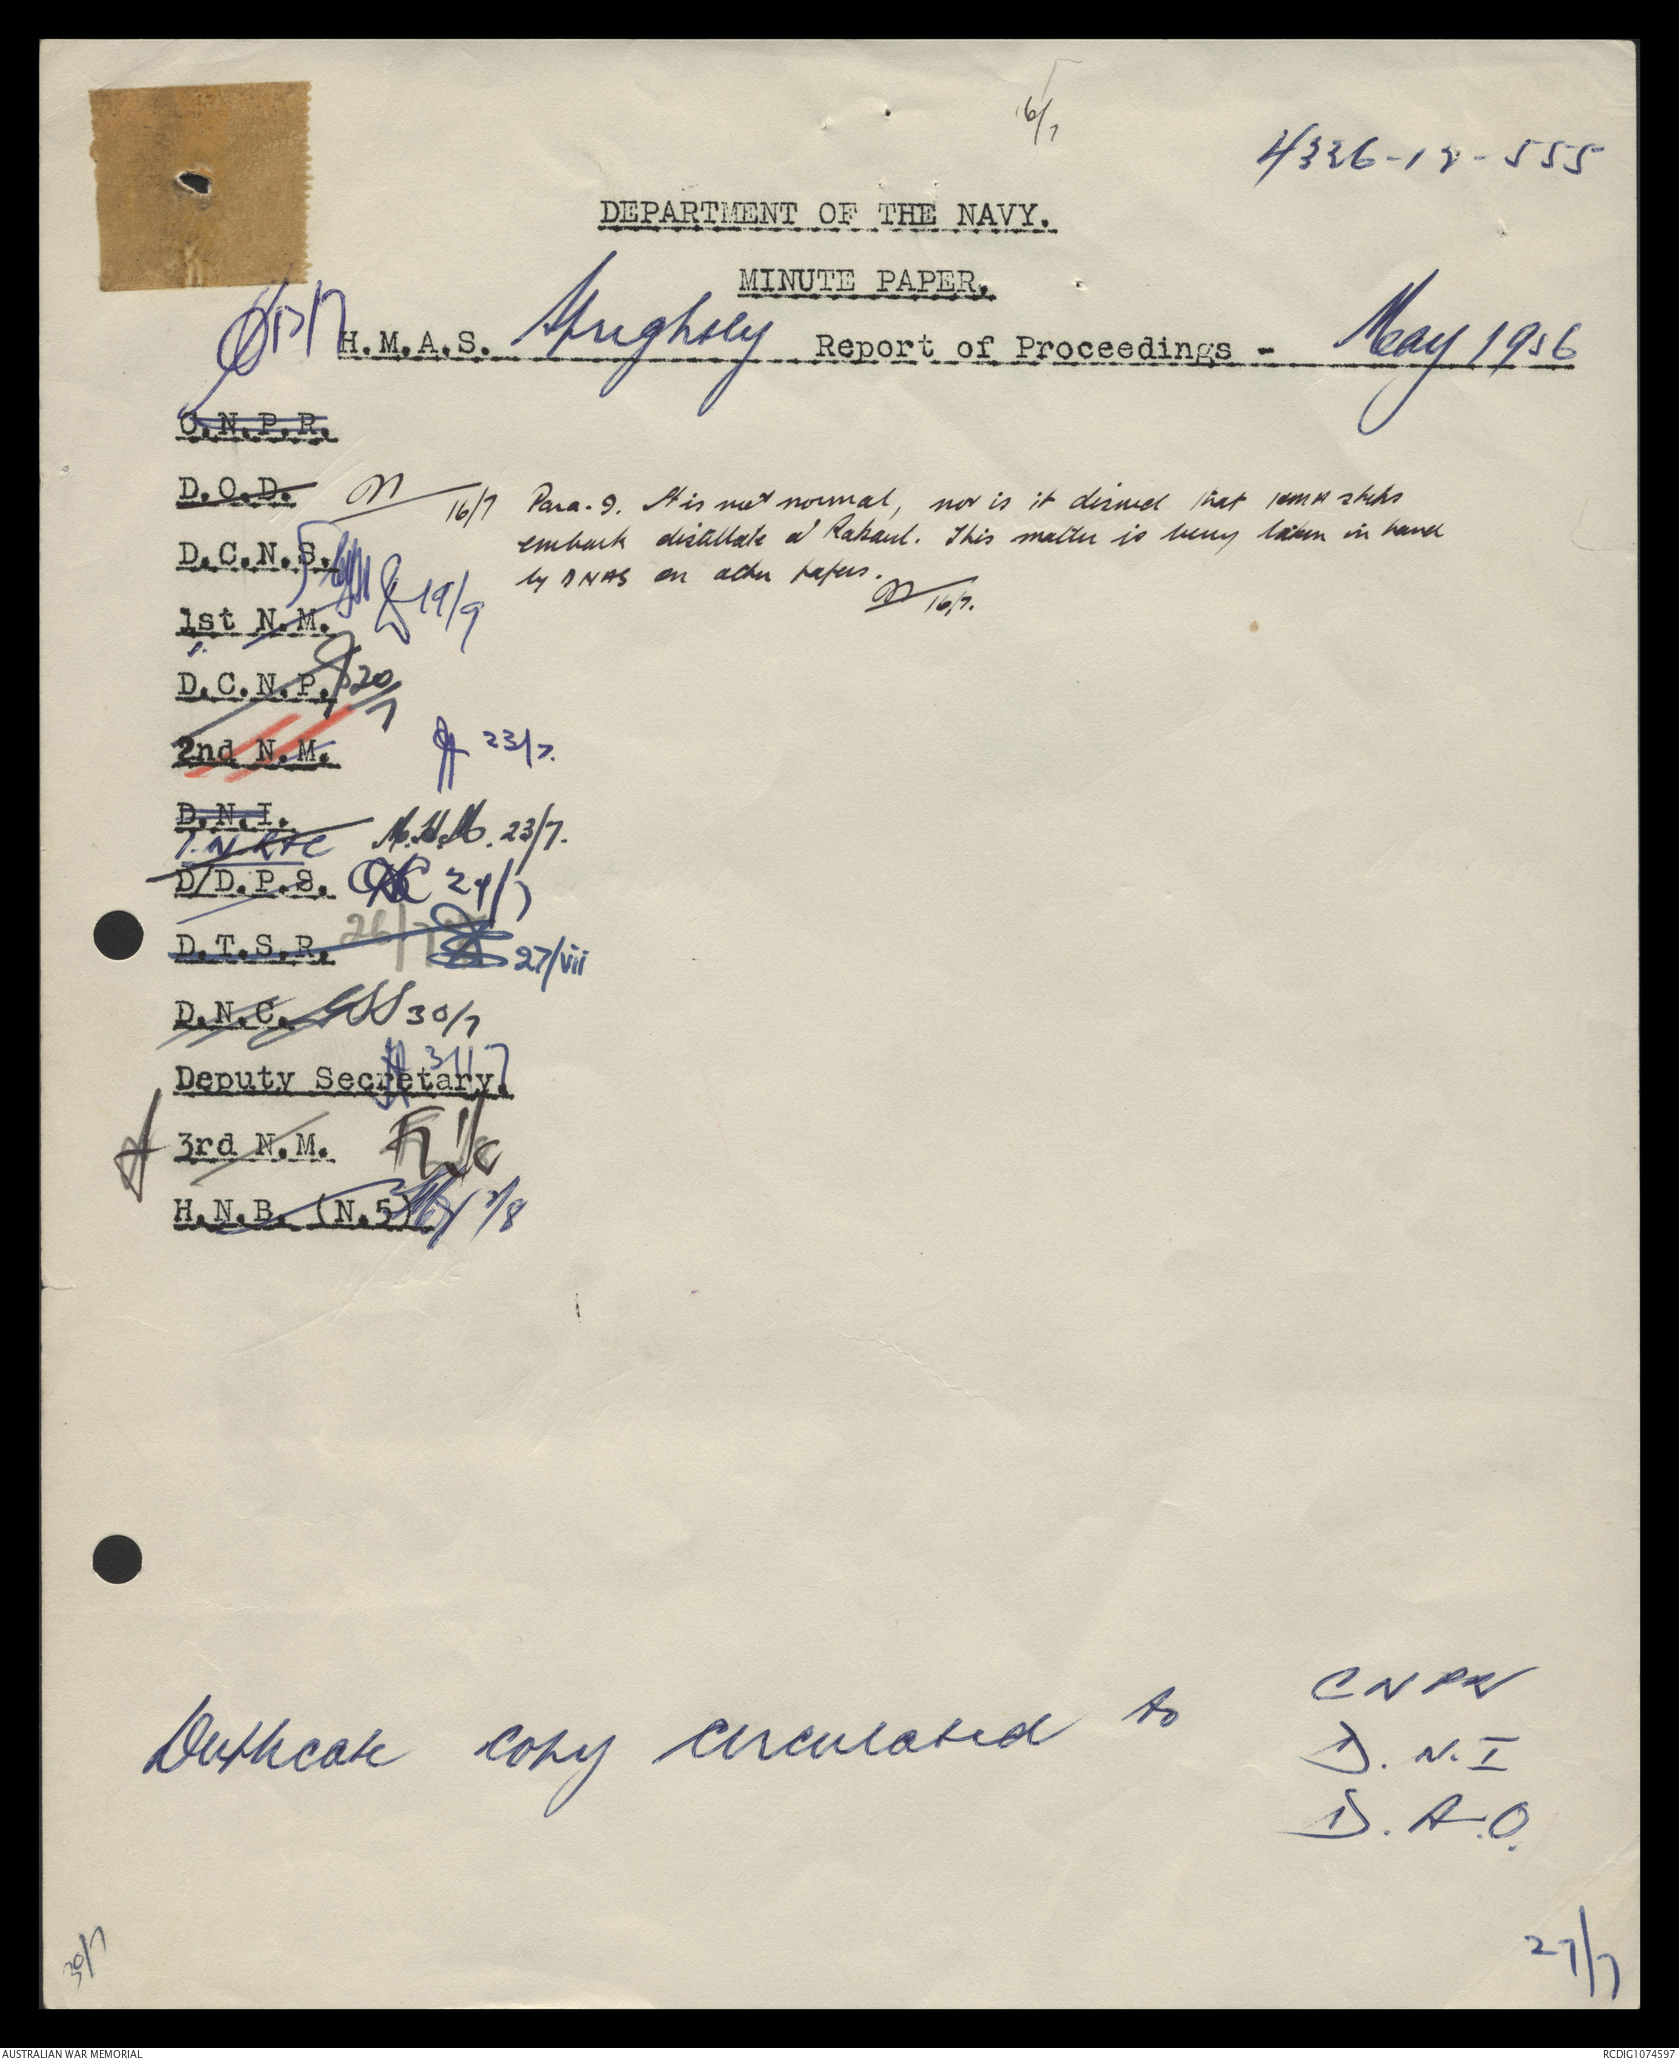 16/7
4326-12-555
DEPARTMENT OF THE NAVY.
MINUTE PAPER.
13/7
H.M.A.S. Report of Proceedings - May 1956
C.N.P.R.
D.O.D. 16/7 Para. 9. It is not normal, nor is it desired that ships
embark distillate at Rabaul. This matter is being taken in hand
by DNAS on other papers.
16/7.
D.C.N.S.
19/9
1st N.M.
D.C.N.P. 20/7
2nd N.M. 23/7.
D.N.I.
M.H.M. 23/7.
D/D.P.S. 24/7
D.T.S.R. 26/7 27/vii
D.N.C. 30/7
Deputy Secretary. 31/7
3rd N.M.
H.N.B. (N.5) 2/8
Duplicate copy circulated to CNPR
D.N.I
D.A.O.
30/7
27/7
AUSTRALIAN WAR MEMORIAL
RCDIG1074597